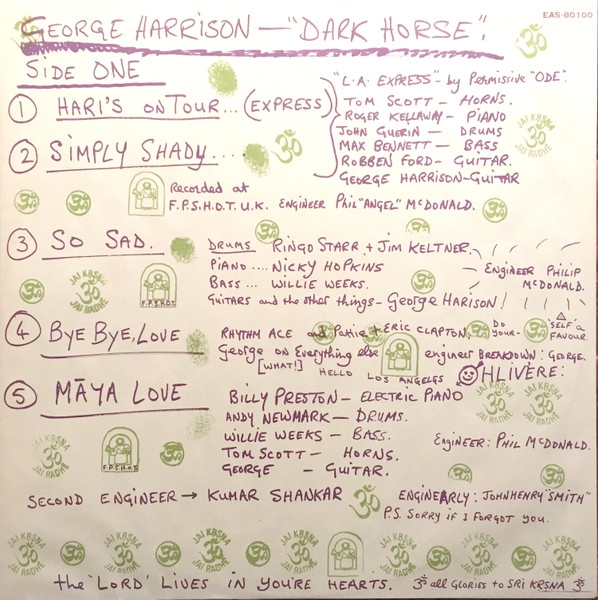 EAS-80100
GEORGE HARRISON — "DARK HORSE".
SIDE ONE
① HARI'S ON TOUR... (EXPRESS)
② SIMPLY SHADY....
"L.A. EXPRESS" - by Permissive "ODE".
TOM SCOTT - HORNS.
ROGER KELLAWAY - PIANO
JOHN GUERIN — DRUMS
MAX BENNETT - BASS
ROBBEN FORD - GUITAR.
GEORGE HARRISON - GUITAR
Recorded at
F.P.S.H.O.T. U.K. ENGINEER PHIL "ANGEL" McDONALD.
③ SO SAD.
DRUMS RINGO STARR + JIM KELTNER.
PIANO .... NICKY HOPKINS
BASS ... WILLIE WEEKS.
GUITARS and the other things - GEORGE HARISON!
ENGINEER PHILIP
McDONALD.
④ BYE BYE, LOVE
RHYTHM ACE and Pattie + ERIC CLAPTON.
George on Everything else
[WHAT!] HELLO LOS ANGELES
DO
YOUR-
SELF a
FAVOUR.
engineer BREAKDOWN: GEORGE.
OHLIVERE:
⑤ MĀYA LOVE
BILLY PRESTON — ELECTRIC PIANO
ANDY NEWMARK — DRUMS.
WILLIE WEEKS — BASS.
TOM SCOTT — HORNS.
GEORGE — GUITAR.
ENGINEER: PHIL McDONALD.
SECOND ENGINEER → KUMAR SHANKAR
ENGINEARLY: JOHNHENRY "SMITH"
P.S. SORRY IF I FORGOT YOU.
JAI KRSNA
ॐ
JAI RADHE
F.P.S.H.O.T.
the 'LORD' LIVES IN YOU'RE HEARTS.
ॐ all GLORIES to SRI KRSNA ॐ